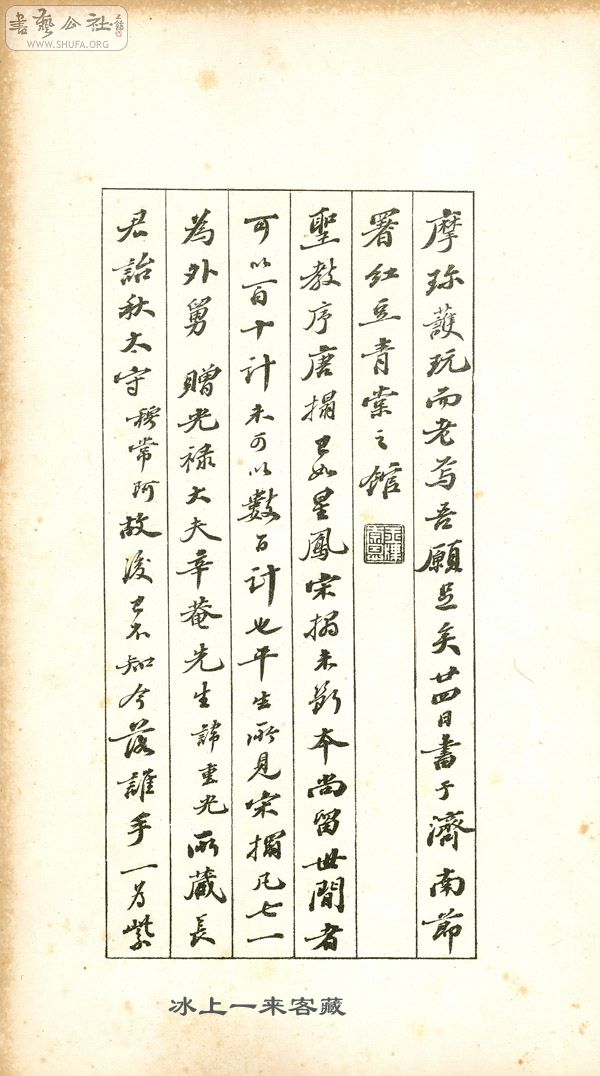 書藝公社
WWW.SHUFA.ORG
摩珎護玩而老焉吾願足矣廿四日書于濟南節
署紅豆青棠之館
聖教序唐搨已如星鳳宋搨未斷本尚留世間者
可以百十計未可以數百計也平生所見宋搨凡七一
為外舅 贈光祿大夫辛菴先生諱重光所藏長
君詒秋太守穆常阿故後已不知今落誰手一為紫
冰上一来客藏